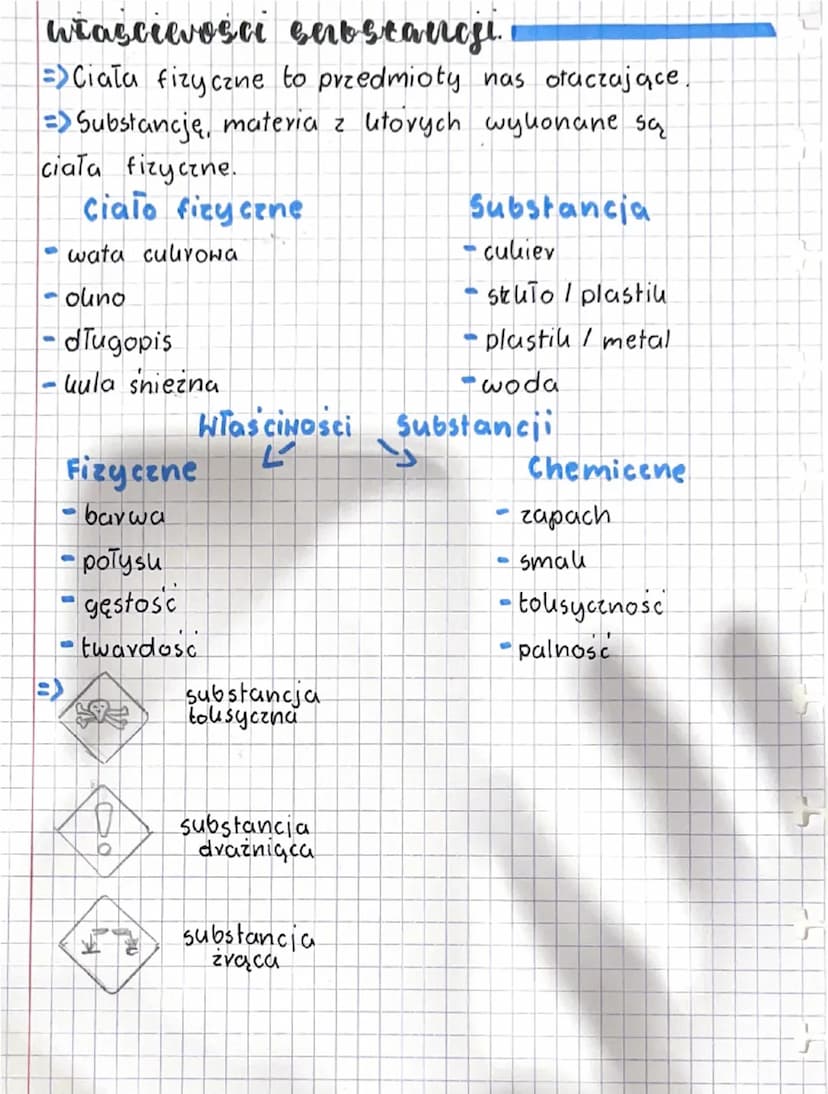 Właściwości substancji.
=> Ciała fizyczne to przedmioty nas otaczające.
=> Substancję, materia z których wykonane są
ciała fizyczne.
Ciało fizyczne Substancja
- wata cukrowa - cukier
- okno - szkło / plastik
- długopis - plastik / metal
- kula śnieżna - woda
Właściwości Substancji
Fizyczne Chemiczne
- barwa - zapach
- połysk - smak
- gęstość - toksyczność
- twardość - palność
=> substancja
toksyczna
!
substancja
drażniąca
substancja
żrąca